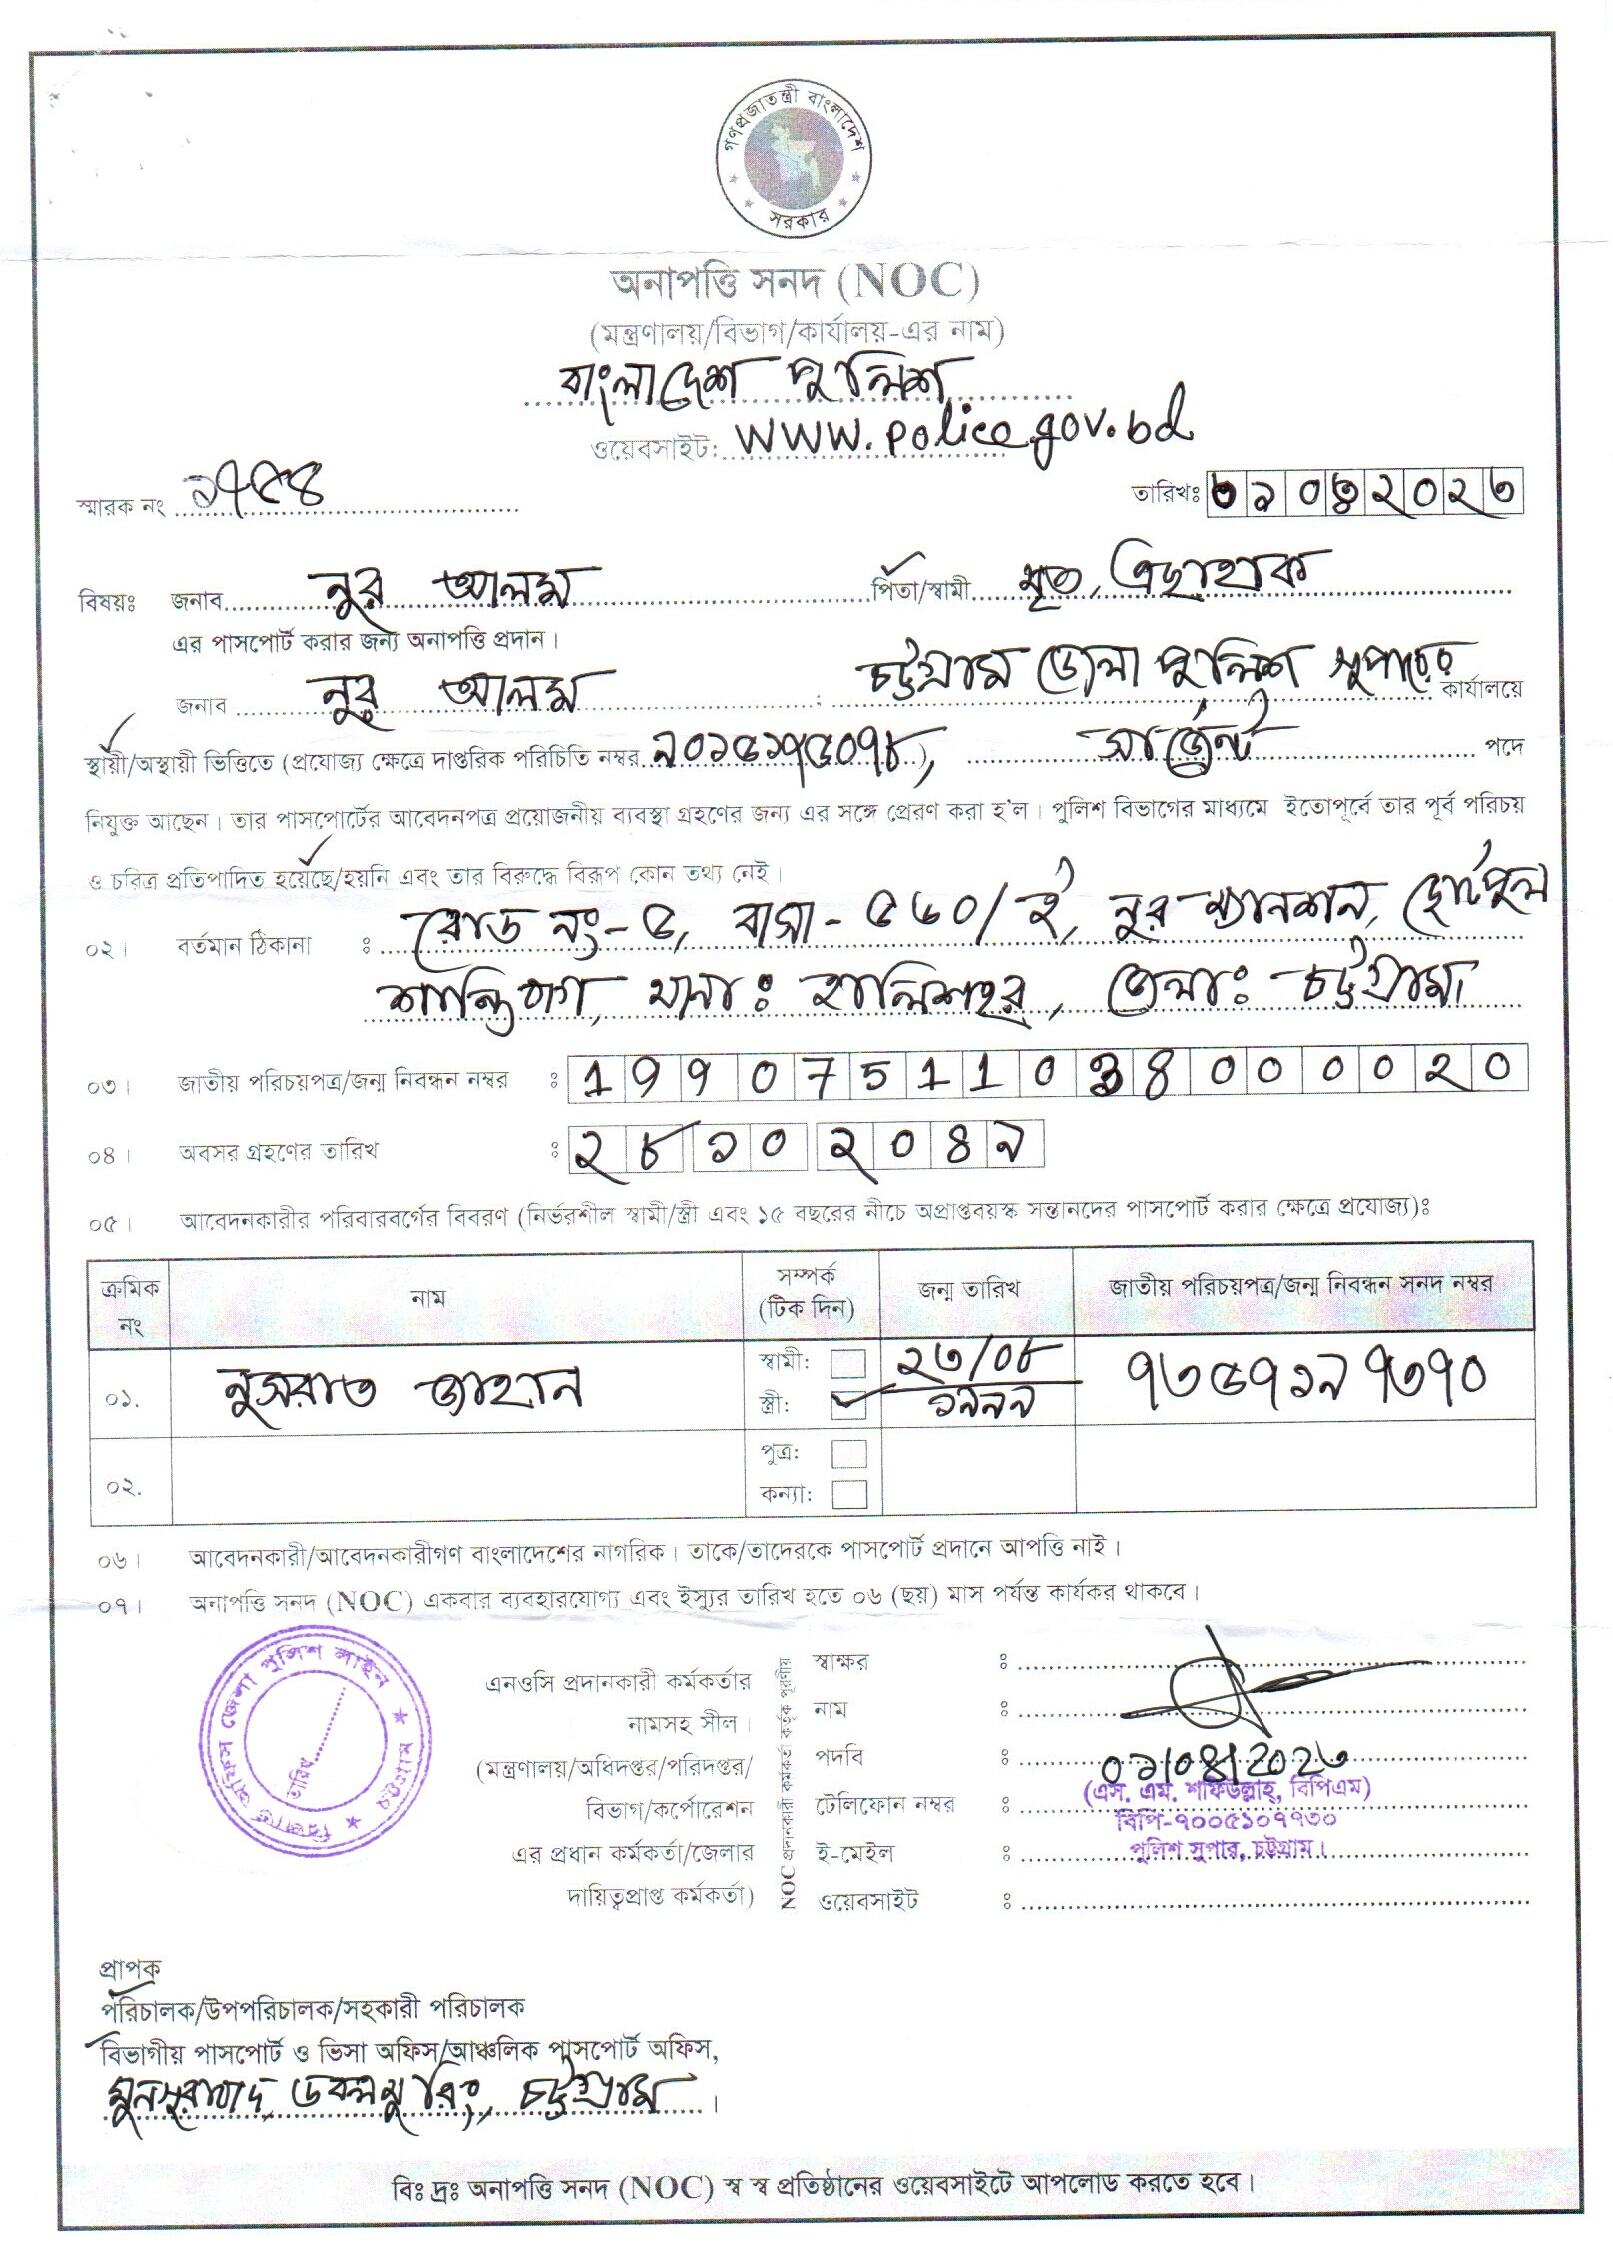 গণপ্রজাতন্ত্রী বাংলাদেশ
সরকার
অনাপত্তি সনদ (NOC)
(মন্ত্রণালয়/বিভাগ/কার্যালয়-এর নাম)
বাংলাদেশ পুলিশ
ওয়েবসাইট: www.police.gov.bd
স্মারক নং ১৭৫৪ তারিখঃ ০২০২৩
বিষয়ঃ জনাব নুর আলম পিতা/স্বামী মৃত, এছাহাক
এর পাসপোর্ট করার জন্য অনাপত্তি প্রদান।
জনাব নুর আলম : চট্টগ্রাম জেলা পুলিশ সুপারের কার্যালয়ে
স্থায়ী/অস্থায়ী ভিত্তিতে (প্রযোজ্য ক্ষেত্রে দাপ্তরিক পরিচিতি নম্বর ৯০১৫১৭৫০৭৮), সার্জেন্ট পদে
নিযুক্ত আছেন। তার পাসপোর্টের আবেদনপত্র প্রয়োজনীয় ব্যবস্থা গ্রহণের জন্য এর সঙ্গে প্রেরণ করা হ'ল। পুলিশ বিভাগের মাধ্যমে ইতোপূর্বে তার পূর্ব পরিচয়
ও চরিত্র প্রতিপাদিত হয়েছে/হয়নি এবং তার বিরুদ্ধে বিরূপ কোন তথ্য নেই।
০২। বর্তমান ঠিকানা ঃ রোড নং-৫, বাসা-৫৬০/ই, নুর ম্যানশন, ছোটপুল
শান্তিবাগ, থানাঃ হালিশহর, জেলাঃ চট্টগ্রাম।
০৩। জাতীয় পরিচয়পত্র/জন্ম নিবন্ধন নম্বর ঃ 19907511038000020
০৪। অবসর গ্রহণের তারিখ ঃ ২৮ ১০ ২০৪৯
০৫। আবেদনকারীর পরিবারবর্গের বিবরণ (নির্ভরশীল স্বামী/স্ত্রী এবং ১৫ বছরের নীচে অপ্রাপ্তবয়স্ক সন্তানদের পাসপোর্ট করার ক্ষেত্রে প্রযোজ্য)ঃ
ক্রমিক নং নাম সম্পর্ক (টিক দিন) জন্ম তারিখ জাতীয় পরিচয়পত্র/জন্ম নিবন্ধন সনদ নম্বর
০১. নুসরাত জাহান স্বামী: স্ত্রী: ২৩/০৮ ১৯৯৯ ৭৩৫৭১৯৭৩৭০
০২. পুত্র: কন্যা:
০৬। আবেদনকারী/আবেদনকারীগণ বাংলাদেশের নাগরিক। তাকে/তাদেরকে পাসপোর্ট প্রদানে আপত্তি নাই।
০৭। অনাপত্তি সনদ (NOC) একবার ব্যবহারযোগ্য এবং ইস্যুর তারিখ হতে ০৬ (ছয়) মাস পর্যন্ত কার্যকর থাকবে।
রিজার্ভ অফিস জেলা পুলিশ লাইন চট্টগ্রাম
তারিখ
এনওসি প্রদানকারী কর্মকর্তার
নামসহ সীল।
(মন্ত্রণালয়/অধিদপ্তর/পরিদপ্তর/
বিভাগ/কর্পোরেশন
এর প্রধান কর্মকর্তা/জেলার
দায়িত্বপ্রাপ্ত কর্মকর্তা)
NOC প্রদানকারী কর্মকর্তা কর্তৃক পূরণীয়
স্বাক্ষর ঃ
নাম ঃ
পদবি ঃ ০২/০৪/২০২৩
(এস. এম. শফিউল্লাহ্, বিপিএম)
টেলিফোন নম্বর ঃ বিপি-৭০০৫১০৭৭৩০
ই-মেইল ঃ পুলিশ সুপার, চট্টগ্রাম।
ওয়েবসাইট ঃ
প্রাপক
পরিচালক/উপপরিচালক/সহকারী পরিচালক
বিভাগীয় পাসপোর্ট ও ভিসা অফিস/আঞ্চলিক পাসপোর্ট অফিস,
মুনসুরাবাদ, ডবলমুরিং, চট্টগ্রাম।
বিঃ দ্রঃ অনাপত্তি সনদ (NOC) স্ব স্ব প্রতিষ্ঠানের ওয়েবসাইটে আপলোড করতে হবে।